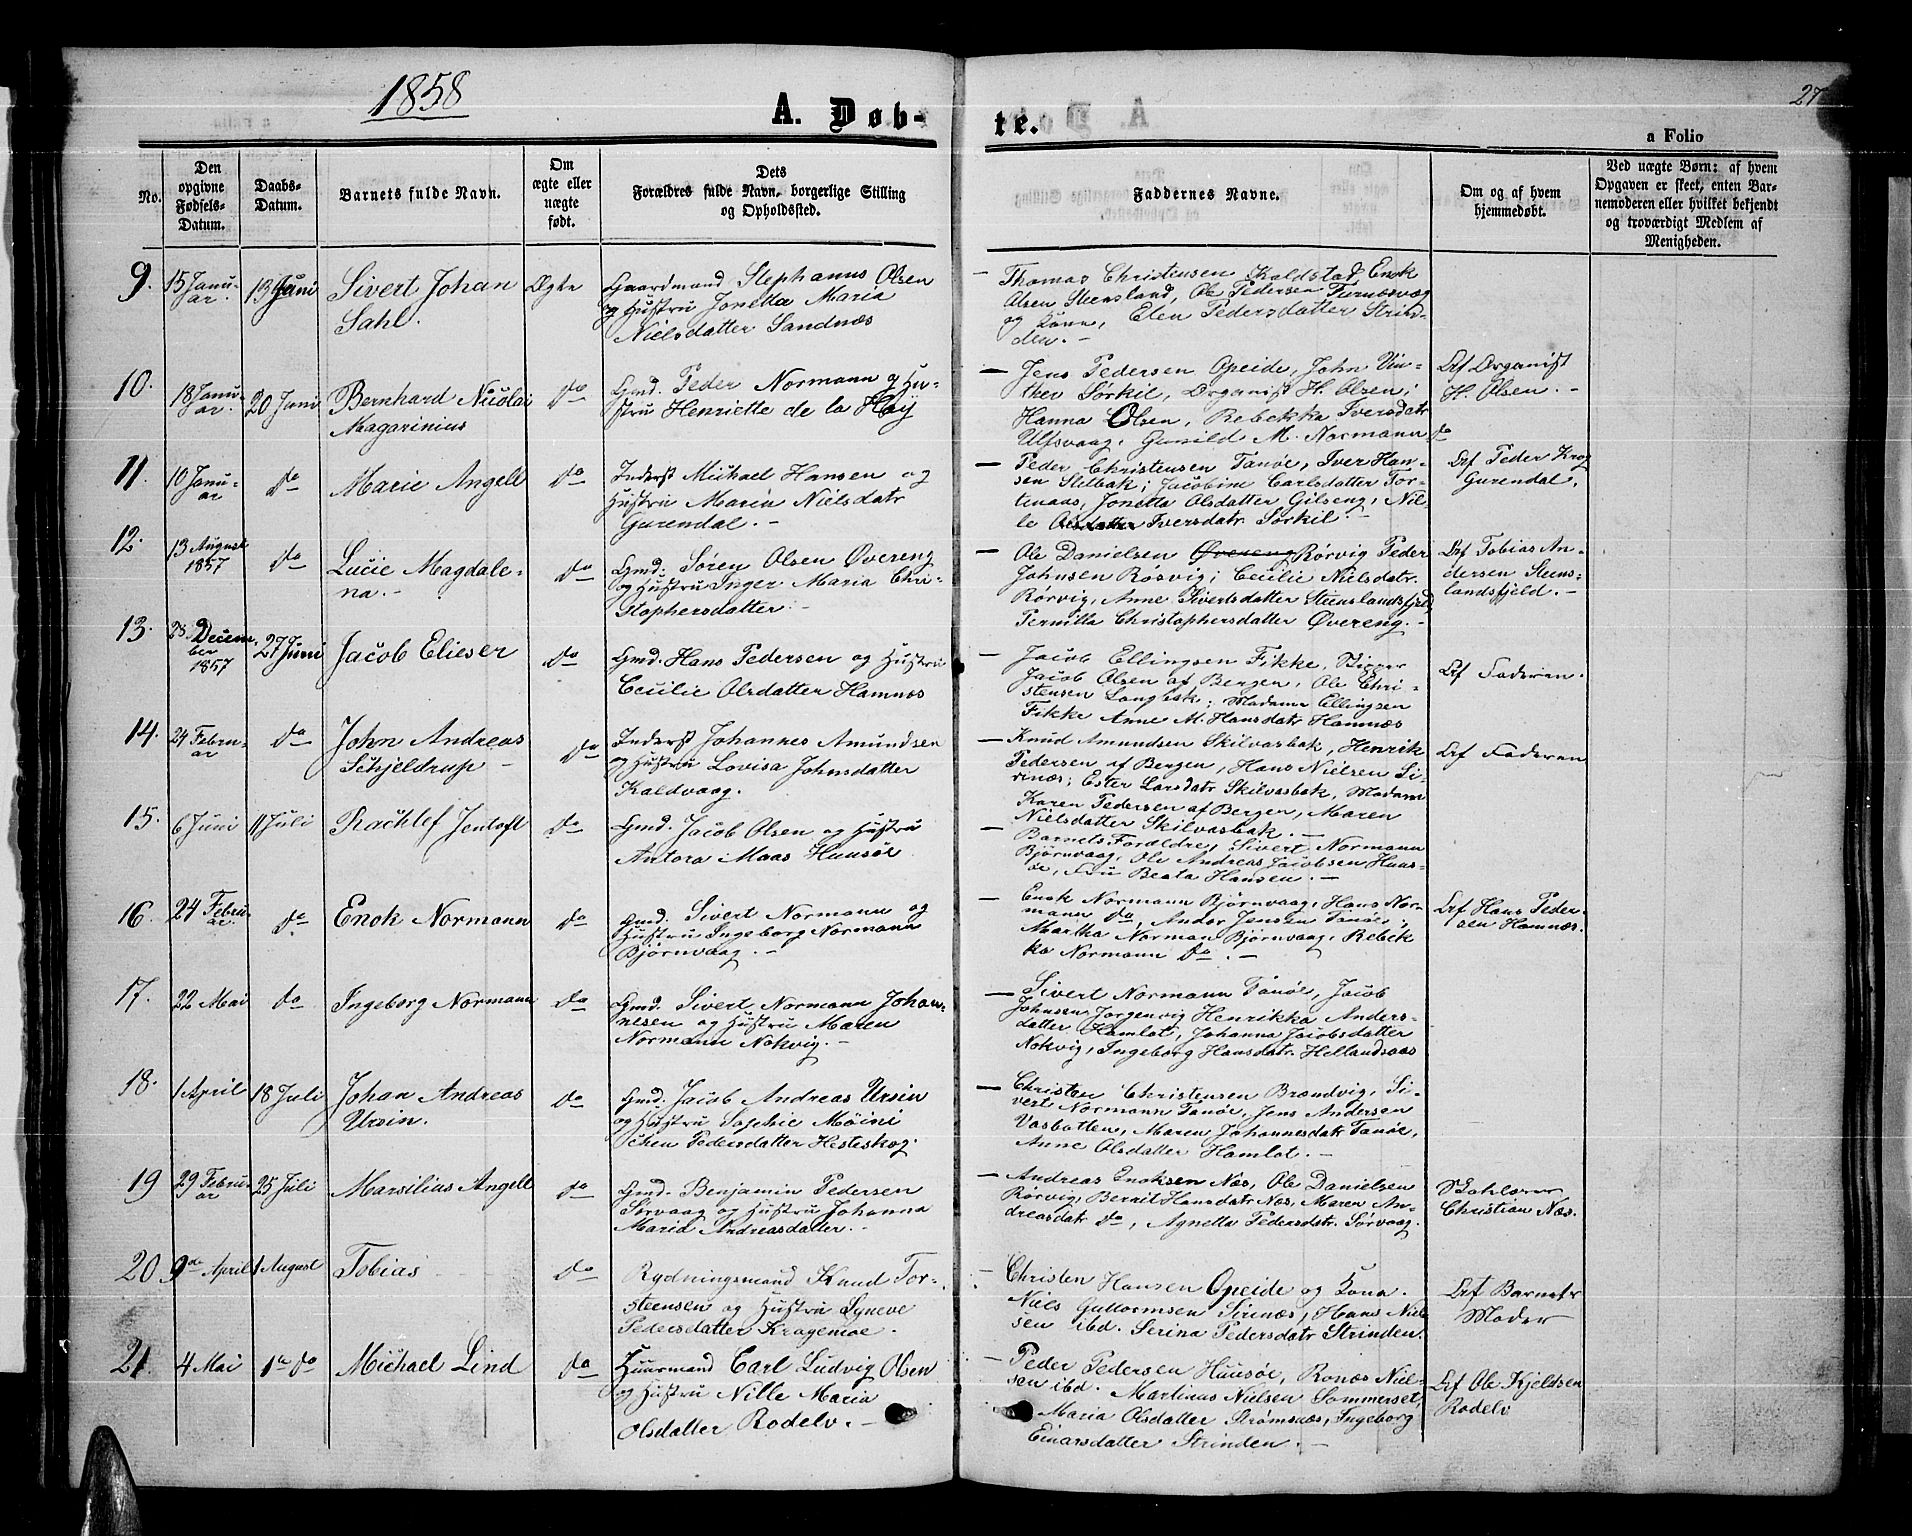 1858
A. Døb-
te.
27
a Folio
No.
Den
opgivne
Fødsels-
Datum.
Daabs-
Datum.
Barnets fulde Navn.
Om
ægte eller
uægte
født.
Dets
Forældres fulde Navn, borgerlige Stilling
og Opholdssted.
Faddernes Navne.
Om og af hvem
hjemmedøbt.
Ved uægte Børn: af hvem
Opgaven er skeet, enten Bar-
nemoderen eller hvilket bekjendt
og troværdigt Medlem af
Menigheden.
9.
15 Janu-
ar.
13 Juni
Sivert Johan
Sahl.
Ægte
Gaardmand Stephanus Olsen
og Hustru Jonetta Maria
Nielsdatter Sandnæs
Thomas Christensen Kaldstad, Enok
Olsen Steensland, Ole Pedersen Furnesvæg
og Kone, Elen Pedersdatter Strind-
den. -
10.
18 Janu-
ar.
20 Juni
Bernhard Nicolai
Magarinius
do
Gmd. Peder Normann og Hu-
stru Henriette de la Hay
Jens Pedersen Opeide, John Vin-
ther Sørkil, Organist H. Olsen;
Hanna Olsen, Rebekka Iversdatr
Ulfsvaag, Gunild M. Normann do
Af Organist
H. Olsen. -
11.
10 Janu-
ar
do
Marie Angell
do
Inderst Michael Hansen og
Hustru Maria Nielsdatr
Gurendal. -
Peder Christensen Tanøe, Iver Han-
sen Stelbak; Jacobine Carlsdatter Tor-
tenaas, Jonetta Olsdatter Gilseng, Nil-
le Olsdatter Iversdatr. Sørkil. -
Af Peder Krog
Gurendal,
12.
13 August
1857
do
Lucie Magdale-
na. -
do
Gmd. Søren Olsen Øvereng
og Hustru Inger Maria Chri-
stophersdatter. -
Ole Danielsen Øvereng Rørvig Peder
Johnsen Røsvig; Cecilie Nielsdatr.
Rørvig, Anne Sivertsdatter Steenslandsfjeld
Pernilla Christophersdatter Øvereng. -
Af Tobias An-
dersen Steens-
landsfjeld. -
13.
28. Decem-
ber
1857
27 Juni
Jacob Elieser
do
Gmd. Hans Pedersen og Hustru
Cecilie Olsdatter Hamnæs
Jacob Ellingsen Fikke,
Jacob Olsen af Bergen, Ole Chri-
stensen Langbak; Madame Ellingsen
Fikke Anne M. Hansdatr Hamnæs
Af Faderen.
14.
24 Febru-
ar
do
John Andreas
Schjeldrup -
do
Inderst Johannes Amundsen
og Hustru Lovisa Johnsdatter
Kaldvaag.
Knud Amundsen Skilvasbak, Henrik
Pedersen af Bergen, Hans Nielsen Si-
rinæs; Ester Larsdatr. Skilvasbak, Madam
Karen Pedersen af Bergen, Maren
Nielsdatter Skilvasbak. -
Af Faderen
15.
6 Juni
11 Juli
Rachlef Jentoft
do
Gmd. Jacob Olsen og Hustru
Antora Maas Huusøe
Barnets Forældre, Sivert Normann
Bjørnvaag, Ole Andreas Jacobsen Huus-
øe, Fru Beata Hansen. -
16.
24 Febru-
ar.
do
Enok Normann
do
Gmd. Sivert Normann og
Hustru Ingeborg Normann
Bjørnvaag. -
Enok Normann Bjørnvaag, Hans Nor-
mann do, Andor Jensen Tanøe;
Martha Norman Bjørnvaag, Rebek
ka Normann do. -
Af Hans Peder-
sen Hamnæs.
17.
22 Mai
do
Ingeborg Normann
do
Gmd. Sivert Normann Johan-
nesen og Hustru Maren
Normann Nokvig. -
Sivert Normann Tanøe, Jacob
Johnsen Jørgenvig Henrikka Anders-
datter Hamlot, Johanna Jacobsdatter
Nokvig, Ingeborg Hansdatr. Hellandsaas
18.
1 April
18 Juli
Johan Andreas
Ursin.
do
Gmd. Jacob Andreas Ursin
og Hustru Sophie Møini
chen Pedersdatter Hesteskog.
Christen Christensen Brandvig, Si-
vert Normann Tanøe, Jens Andersen
Vasbotten, Maren Johannesdatr Tanøe,
Anne Olsdatter Hamlot. -
19
29 Febru-
ar
25 Juli
Marsilius Angell
do
Gmd. Benjamin Pedersen
Sørvaag og Hustru Johanna
Maria Andreasdatter. -
Andreas Enoksen Næs, Ole Danielsen
Rørvig, Berait Hansdatr Næs, Maren An-
dreasdatr do, Agnetta Pedersdatr. Sørvaag.
Skolelærer
Christian Næs.
20
9de April
1 August
Tobias
do
Rydningsmand Knud Tor-
steensen og Hustru Syneve
Pedersdatter Kragemoe. -
Christen Hansen Opeide og Kona.
Niels Guttormsen Sirinæs, Hans Niel-
sen ibd. Serina Pedersdatr Strinden.
Af Barnets
Moder
21.
4 Mai
1te do
Michael Lind
do
Huusmand Carl Ludvig Olsen
og Hustru Nille Maria
Olsdatter Rodelv. -
Peder Pedersen Huusøe, Ronæs Niel-
sen ibd. Martinus Nielsen Sommerset,
Maria Olsdatter Strømsnæs, Ingeborg
Einarsdatter Strinden. -
Af Ole Kjeldsen
Rodelv